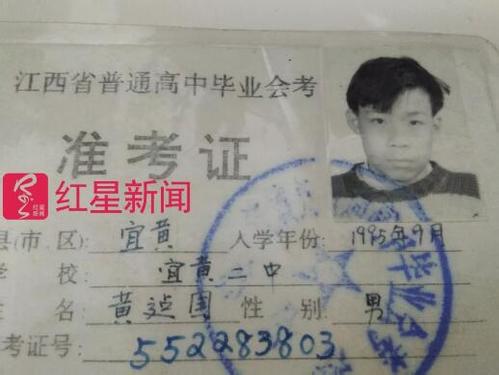 江西省普通高中毕业会考
准考证
红星新闻
红星新闻
县(市 区): 宜黄 入学年份: 1995年9月
学 校: 宜黄二中
姓 名 黄 国 性 别: 男
考证号: 552283803
毕业会考